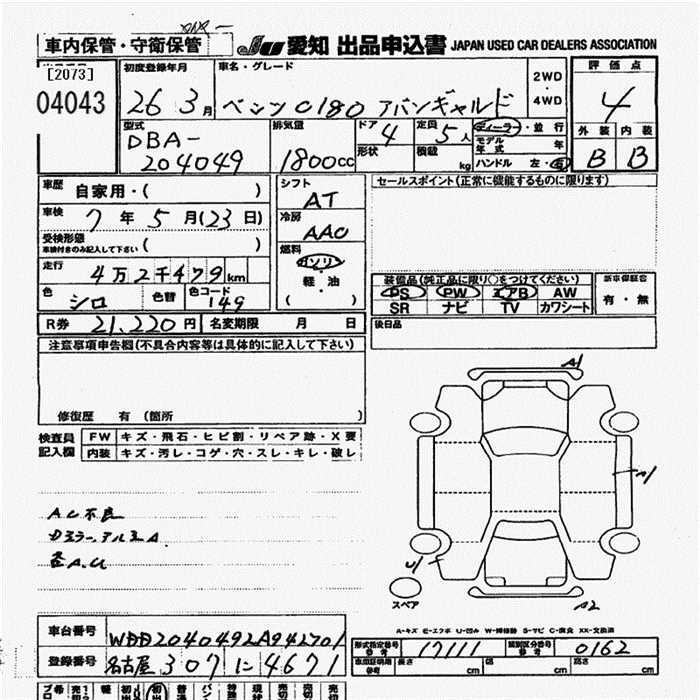 車内保管・守衛保管
JU 愛知 出品申込書 JAPAN USED CAR DEALERS ASSOCIATION
[2073]
04043
初度登録年月 車名・グレード 2WD・4WD 評価点
26 3月 ベンツ C180 アバンギャルド 4
型式 排気量 ドア 4 定員 5人 ディーラー・並行 外装 内装
DBA-204049 1800cc 形状 積載 kg モデル年式 年 B B
ハンドル 左・右
車歴 自家用・( ) シフト AT セールスポイント(正常に機能するものに限ります)
車検 7年5月(23日) 冷房 AAC
受検形態 車検付きのみ記入して下さい ( ) 燃料 ガソリン
走行 4万2千479km 軽・油
色 シロ 色替 色コード 149 ( )
装備品(純正品に限り○をつけてください) 新車保証書
PS PW エアB AW 有・無
SR ナビ TV カワシート
R券 21,220円 名変期限 月 日 後日品
注意事項申告欄(不具合内容等は具体的に記入して下さい)
修復歴 有 (箇所 )
検査員 FW キズ・飛石・ヒビ割・リペア跡・X要
記入欄 内装 キズ・汚レ・コゲ・穴・スレ・キレ・破レ
A1
A1
AC不良
U1
スペア
A2
A-キズ E-エクボ U-凹み W-補修跡 S-サビ C-腐食 XX-交換済
車台番号 WDD2040492A942701
登録番号 名古屋 307 に 4671
形式指定番号 参考 17111 類別区分番号 参考 0162
車庫証明用 参考 長さ cm 幅 cm 高さ cm